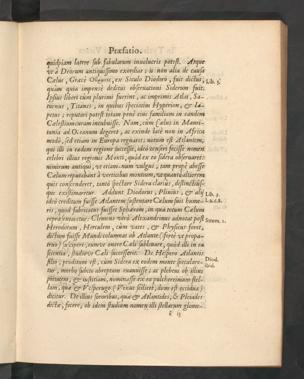 Præfatio.
quidpiam latere sub fabularum involucris potest. Atque
ut à Deorum antiquissimo exordiar; is non aliâ de causâ
Cælus, Græcè Οὐρανὸς, ex Siculo Diodoro, fuit dictus,
quàm quia impensè deditus observationi Siderum fuit.
Ipsius liberi cùm plurimi fuerint, ac imprimis Atlas, Sa-
turnus, Titanes, in quibus speciatim Hyperion, & Ia-
petus; reputari potest totam penè eius familiam in eandem
Cælestium curam incubuisse. Nam, cùm Cælus in Mauri-
tania ad Oceanum degeret, ac exinde latè non in Africa
modò, sed etiam in Europa regnaret; notum est Atlantem,
qui illi in eadem regione successit, ideò censeri fecisse nomen
celebri illius regionis Monti, quòd ex eo sidera observaret:
nimirum antiqui, ut etiam num vulgus, tam propè abesse
Cælum reputabant à verticibus montium, ut quantò altiorem
quis conscenderet, tantò spectare Sidera clariùs, distinctiùs-
que existimaretur. Volunt Diodorus, Plinius, & alij
ideò creditum fuisse Atlantem sustentare Cælum suis hume-
ris, quòd fabricatus fuisset Sphæram, in qua totum Cælum
repræsentaretur. Clemens verò Alexandrinus adnotat post
Herodotum, Herculem, cùm vates, & Physicus foret,
dictum fuisse Mundi columnas ab Atlante
suscipere, numerove onere Cæli sublevare, quòd illi in ea
scientia, studióve Cæli successerit. De Hespero Atlantis
filio, proditum est, cùm Sidera ex eodem monte specularetur,
tur, morbo subitò abreptum evanuisse; ac plebem ob illius
pietatem, & iustitiam, nominasse ex eo pulcherrimam stel-
lam, quæ & Vesperugo (Venus scilicet, dum est occidua)
dicitur. De illius sororibus, quæ & Atlantides, & Pleiades
dictæ, fecere, ob idem studium nomen illi stellarum glome-
Lib. 3.
Lib. 2.
Diod.
ibid.